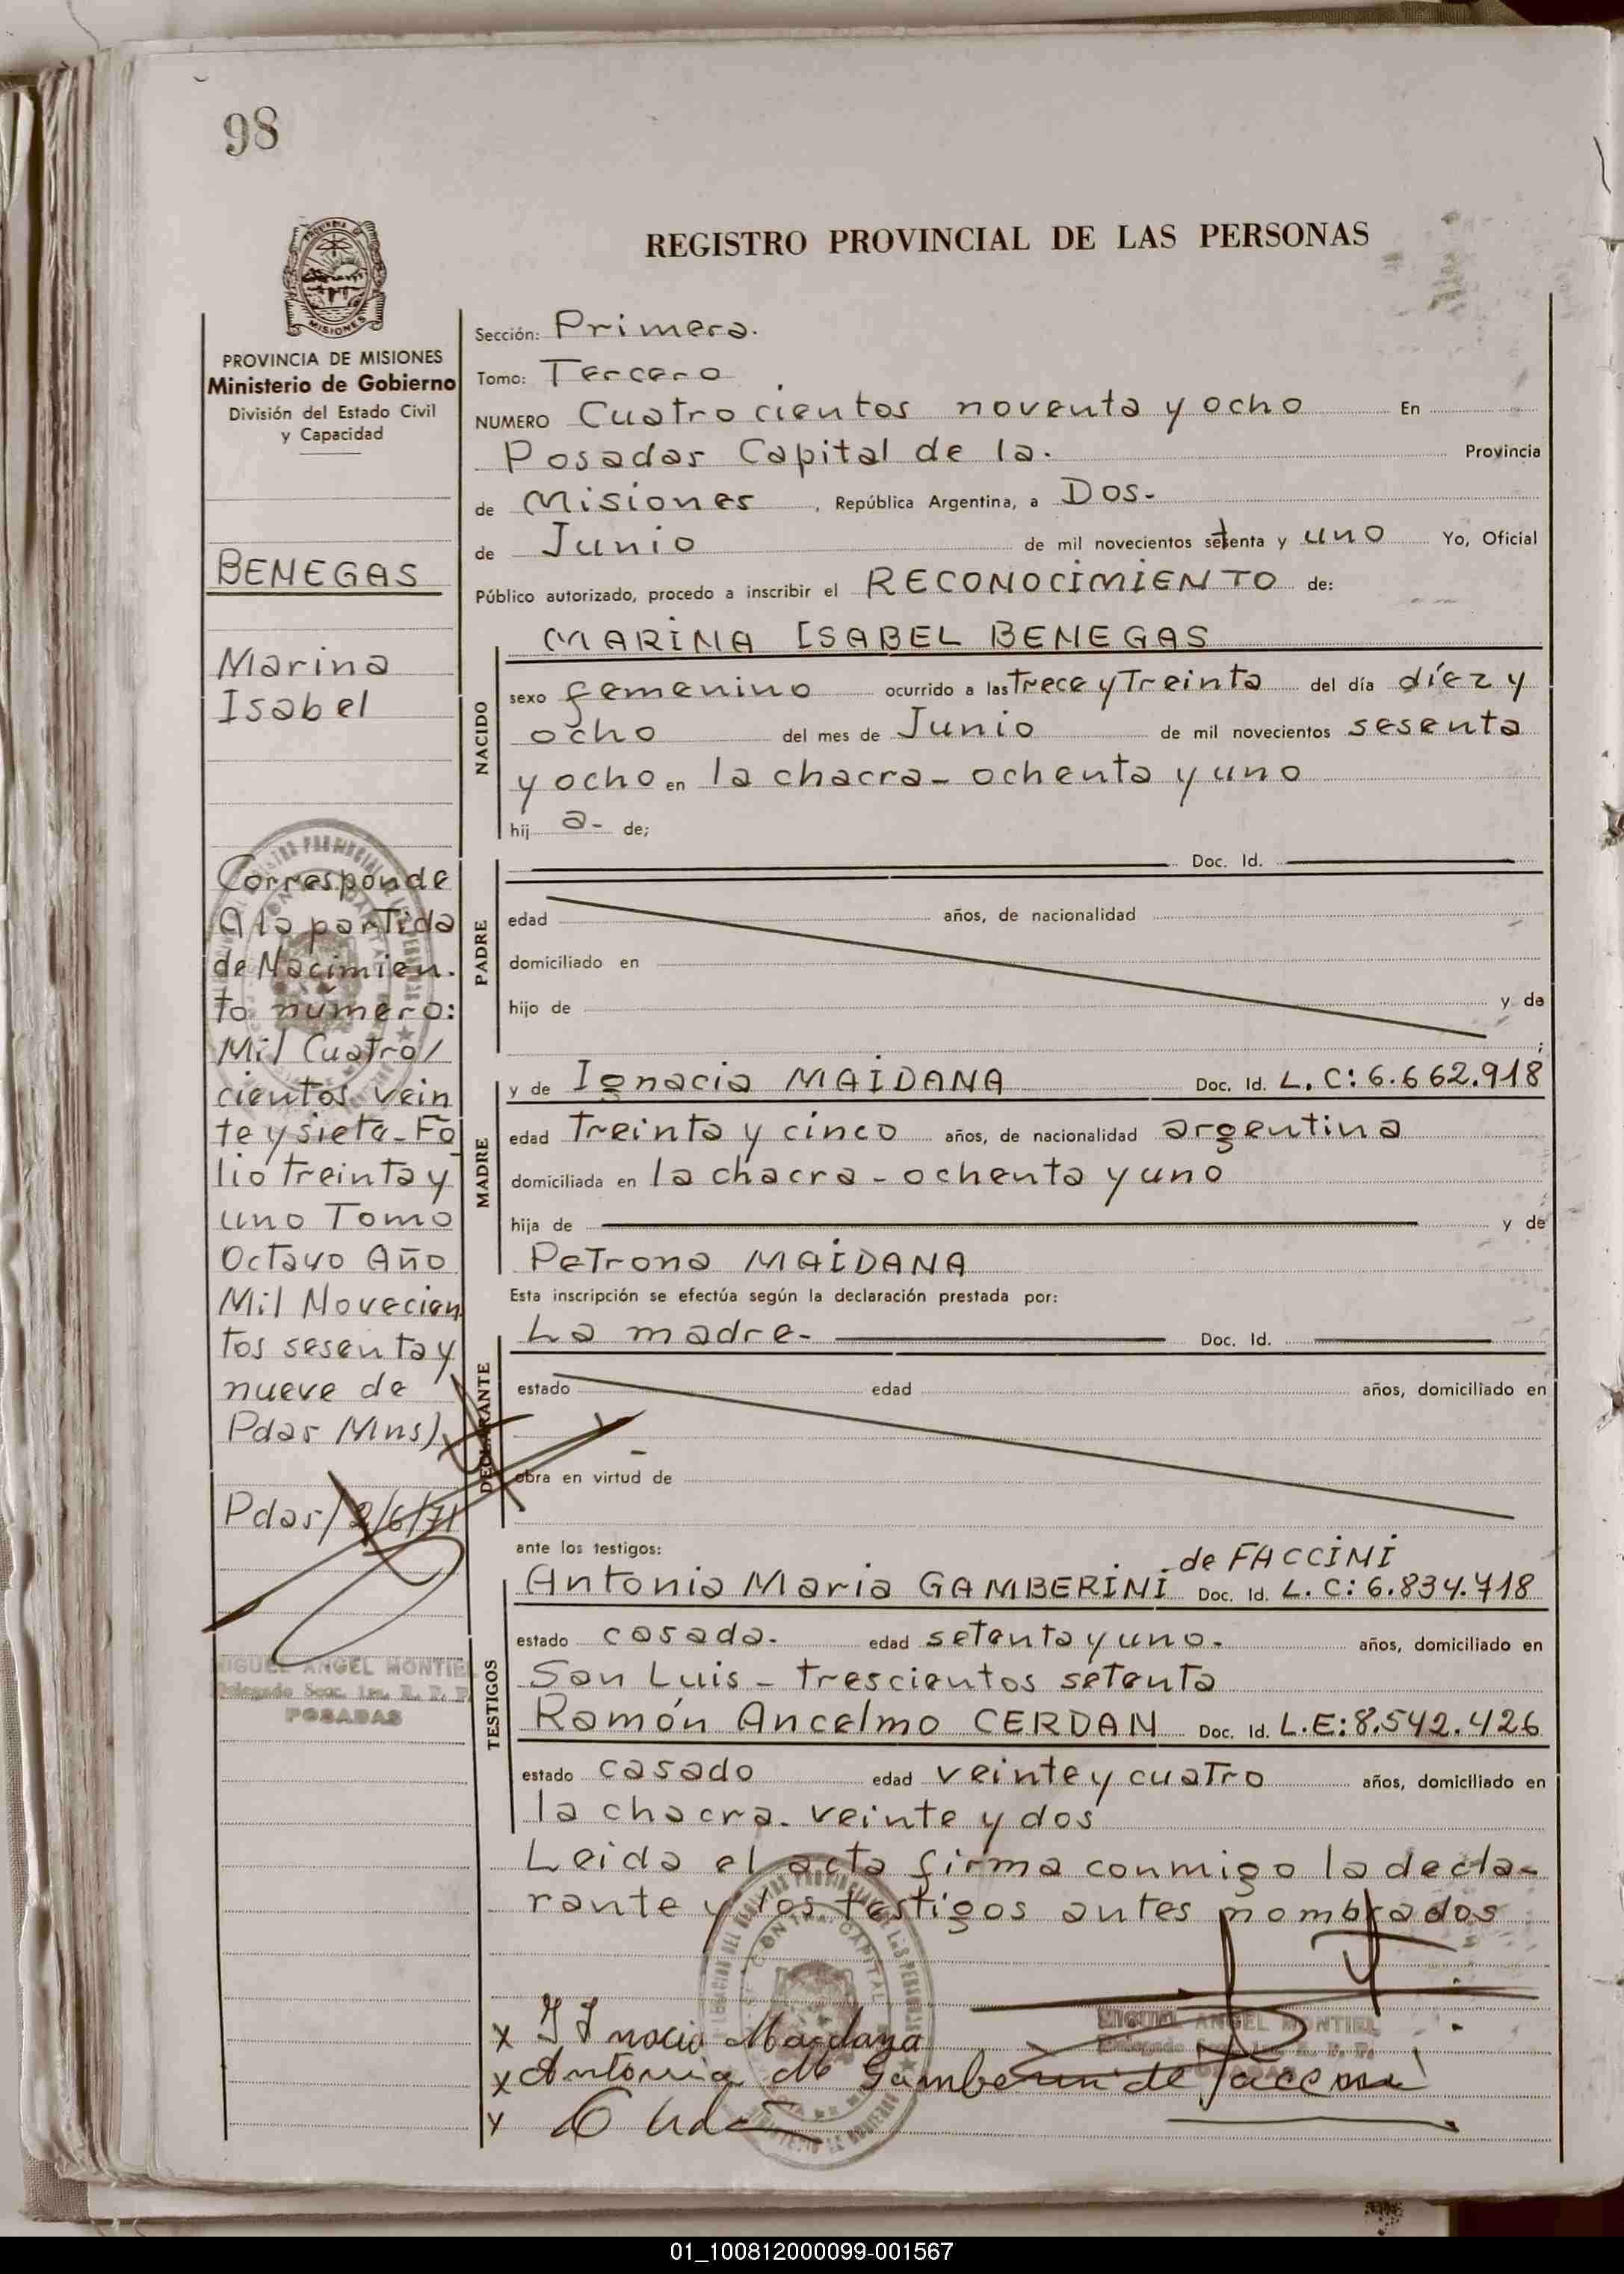 98
REGISTRO PROVINCIAL DE LAS PERSONAS
MISIONES
PROVINCIA DE MISIONES
Ministerio de Gobierno
División del Estado Civil
y Capacidad
BENEGAS
Marina
Isabel
Corresponde
A la partida
de Nacimien-
to número:
Mil Cuatro/
cientos vein
te y siete - Fo
lio treinta y
uno Tomo
Octavo Año
Mil Novecien
tos sesenta y
nueve de
Pdas Mns)
Pdas/2/6/71
MIGUEL ANGEL MONTIEL
Delegado Secc. 1ra. R. P. P.
POSADAS
Sección: Primera.
Tomo: Tercero
NUMERO Cuatrocientos noventa y ocho En
Posadas Capital de la. Provincia
de Misiones, República Argentina, a Dos-
de Junio de mil novecientos setenta y uno Yo, Oficial
Público autorizado, procedo a inscribir el RECONOCIMIENTO de:
NACIDO
MARINA ISABEL BENEGAS
sexo femenino ocurrido a las Trece y Treinta del día díez y
ocho del mes de Junio de mil novecientos sesenta
y ocho en la chacra - ochenta y uno
hij a- de;
PADRE
Doc. Id.
edad años, de nacionalidad
domiciliado en
hijo de y de
;
MADRE
y de Ignacia MAIDANA Doc. Id. L. C: 6.662.918
edad Treinta y cinco años, de nacionalidad argentina
domiciliada en la chacra - ochenta y uno
hija de y de
Petrona MAIDANA
Esta inscripción se efectúa según la declaración prestada por:
DECLARANTE
La madre- Doc. Id.
estado edad años, domiciliado en
obra en virtud de
ante los testigos:
TESTIGOS
de FACCINI
Antonia Maria GAMBERINI Doc. Id. L. C: 6.834.718
estado casada. edad setenta y uno. años, domiciliado en
San Luis - trescientos setenta
Ramón Ancelmo CERDAN Doc. Id. L.E: 8.542.426
estado casado edad veinte y cuatro años, domiciliado en
la chacra. veinte y dos
Leida el acta firma conmigo la decla-
rante y los testigos antes nombrados
MIGUEL ANGEL MONTIEL
x Maidana
x Antonia M Gamberini de Faccini
01_100812000099-001567